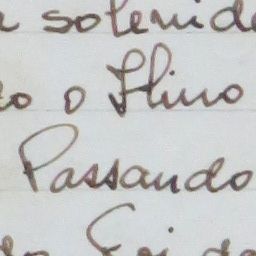 solenida
o Hino
Passando
Foi de